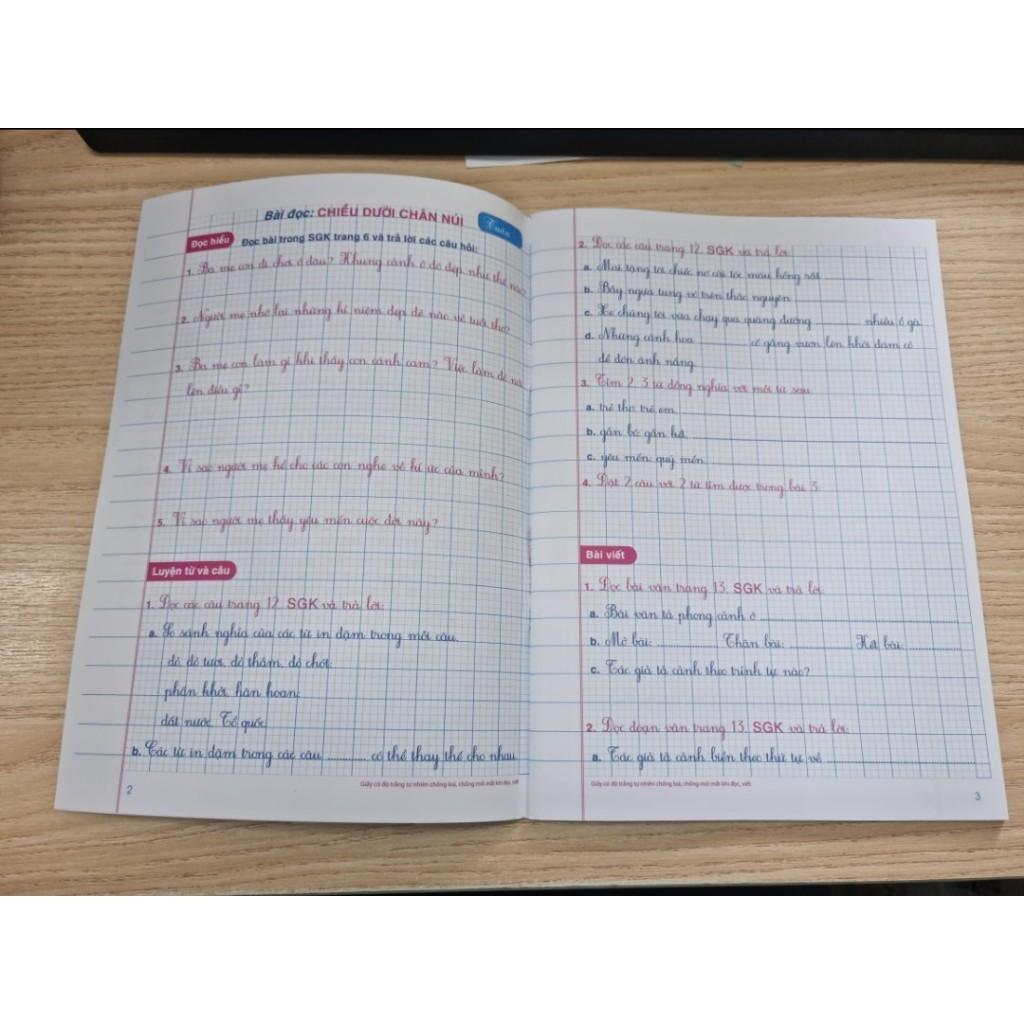 Bài đọc: CHIỀU DƯỚI CHÂN NÚI
Tuần
Đọc hiểu
Đọc bài trong SGK trang 6 và trả lời các câu hỏi:
1. Ba mẹ con đi chơi ở đâu? Khung cảnh ở đó đẹp như thế nào?
2. Người mẹ nhớ lại những kỉ niệm đẹp đẽ nào về tuổi thơ?
3. Ba mẹ con làm gì khi thấy con cánh cam? Việc làm đó nói
lên điều gì?
4. Vì sao người mẹ kể cho các con nghe về kí ức của mình?
5. Vì sao người mẹ thấy yêu mến cuộc đời này?
Luyện từ và câu
1. Đọc các câu trang 12, SGK và trả lời:
a. So sánh nghĩa của các từ in đậm trong mỗi câu.
đỏ, đỏ tươi, đỏ thắm, đỏ chót:
phấn khởi, hân hoan:
đất nước, Tổ quốc:
b. Các từ in đậm trong các câu ........... có thể thay thế cho nhau.
2
Giấy có độ trắng tự nhiên chống loá, chống mỏi mắt khi đọc, viết
2. Đọc các câu trang 12, SGK và trả lời:
a. Mai tặng tôi chiếc nơ cài tóc màu hồng rất
b. Bầy ngựa tung vó trên thảo nguyên
c. Xe chúng tôi vừa chạy qua quãng đường ........... nhiều ổ gà.
d. Những cánh hoa ........... cố gắng vươn lên khỏi đám cỏ
để đón ánh nắng.
3. Tìm 2 - 3 từ đồng nghĩa với mỗi từ sau:
a. trẻ thơ, trẻ em,
b. gắn bó, gần kề,
c. yêu mến, quý mến,
4. Đặt 2 câu với 2 từ tìm được trong bài 3.
Bài viết
1. Đọc bài văn trang 13, SGK và trả lời:
a. Bài văn tả phong cảnh ở
b. Mở bài: ........... Thân bài: ........... Kết bài: ...........
c. Tác giả tả cảnh theo trình tự nào?
2. Đọc đoạn văn trang 13, SGK và trả lời:
a. Tác giả tả cảnh biển theo thứ tự về
Giấy có độ trắng tự nhiên chống loá, chống mỏi mắt khi đọc, viết
3